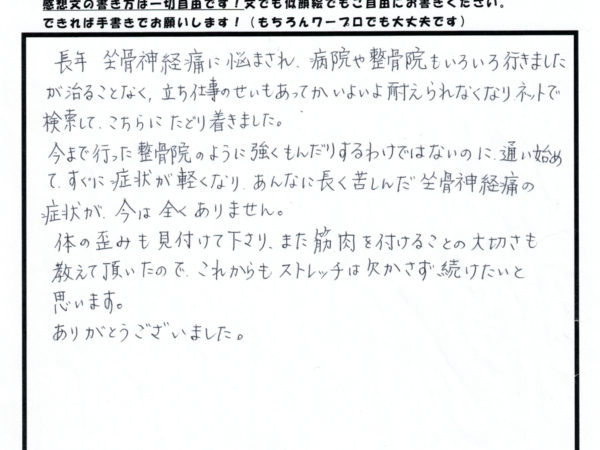 感想文の書き方は一切自由です！文でも似顔絵でもご自由にお書きください。
できれば手書きでお願いします！（もちろんワープロでも大丈夫です）
長年 坐骨神経痛に悩まされ、病院や整骨院もいろいろ行きました
が治ることなく、立ち仕事のせいもあってかいよいよ耐えられなくなり、ネットで
検索して、こちらにたどり着きました。
今まで行った整骨院のように強くもんだりするわけではないのに、通い始め
て、すぐに症状が軽くなり、あんなに長く苦しんだ坐骨神経痛の
症状が、今は全くありません。
体の歪みも見付けて下さり、また筋肉を付けることの大切さも
教えて頂いたので、これからもストレッチは欠かさず続けたいと
思います。
ありがとうございました。